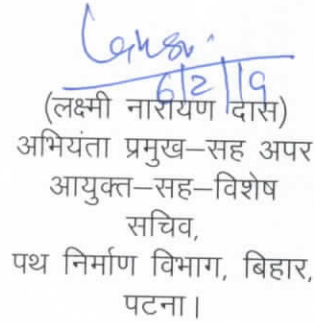 6/2/19
(लक्ष्मी नारायण दास)
अभियंता प्रमुख–सह अपर
आयुक्त–सह–विशेष
सचिव,
पथ निर्माण विभाग, बिहार,
पटना।